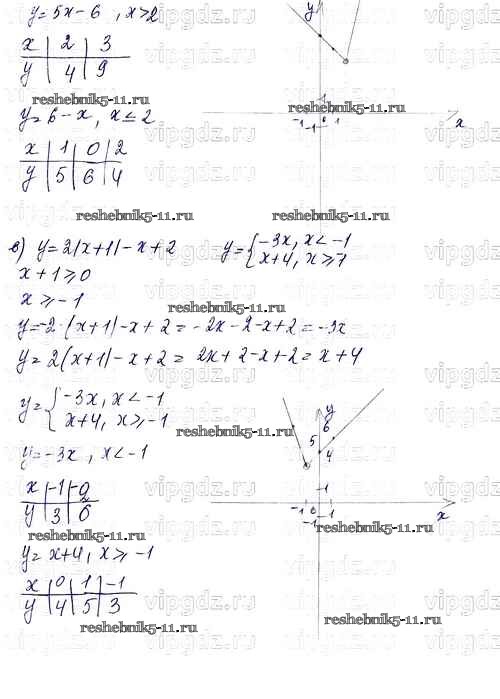 y=5x-6, x>2
x | 2 | 3
y | 4 | 9
reshebnik5-11.ru
y=6-x, x≤2
x | 1 | 0 | 2
y | 5 | 6 | 4
reshebnik5-11.ru
в) y=2|x+1|-x+2
x+1≥0
x≥-1
reshebnik5-11.ru
y=-2·(x+1)-x+2=-2x-2-x+2=-3x
y=2(x+1)-x+2=2x+2-x+2=x+4
y={-3x, x<-1
x+4, x≥-1
y=-3x, x<-1
x | -1 | -2
y | 3 | 6
reshebnik5-11.ru
y=x+4, x≥-1
x | 0 | 1 | -1
y | 4 | 5 | 3
reshebnik5-11.ru
y
reshebnik5-11.ru
1
-1 0 1
-1
x
reshebnik5-11.ru
y={-3x, x<-1
x+4, x≥1
y
6
5
4
reshebnik5-11.ru
1
-1 0 1
-1
x
reshebnik5-11.ru
reshebnik5-11.ru
vipgdz.ru
vipgdz.ru
vipgdz.ru
vipgdz.ru
vipgdz.ru
vipgdz.ru
vipgdz.ru
vipgdz.ru